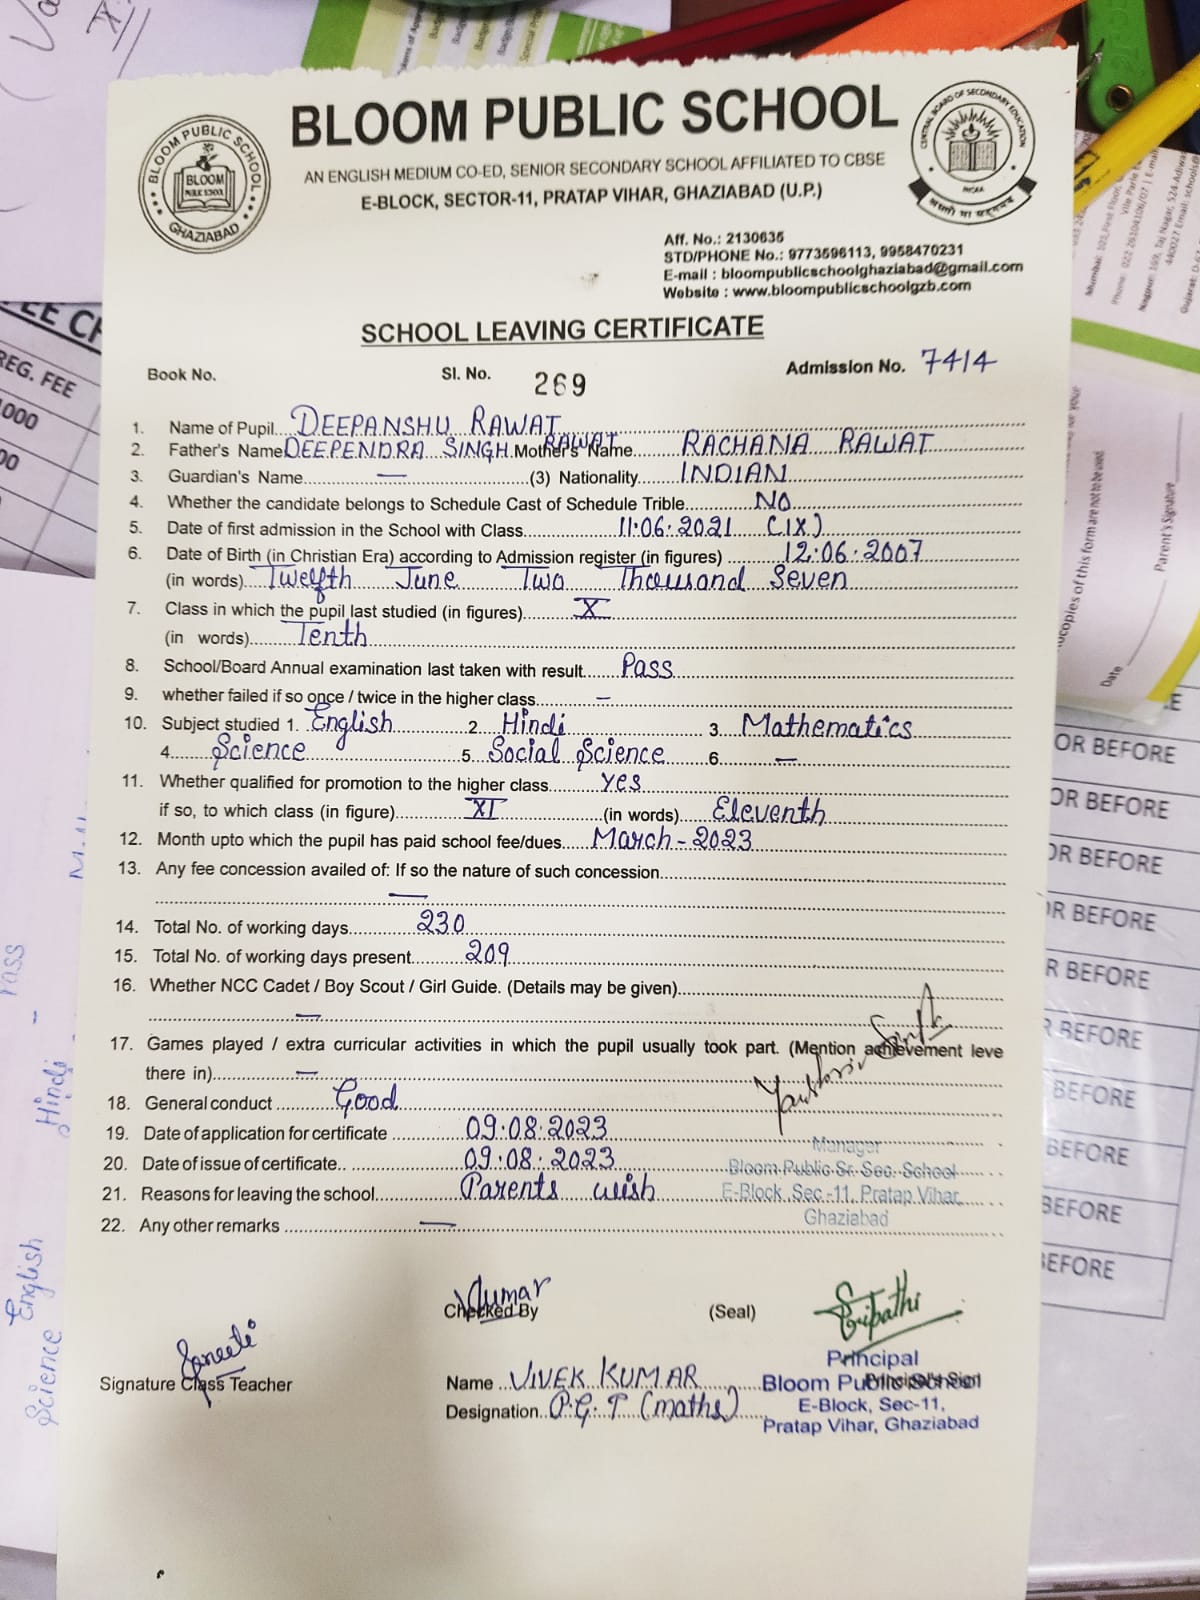 BLOOM PUBLIC SCHOOL
AN ENGLISH MEDIUM CO-ED, SENIOR SECONDARY SCHOOL AFFILIATED TO CBSE
E-BLOCK, SECTOR-11, PRATAP VIHAR, GHAZIABAD (U.P.)
BLOOM PUBLIC SCHOOL
BLOOM
PUBLIC SCHOOL
GHAZIABAD
CENTRAL BOARD OF SECONDARY EDUCATION
Aff. No.: 2130635
STD/PHONE No.: 9773596113, 9958470231
E-mail : bloompublicschoolghaziabad@gmail.com
Website : www.bloompublicschoolgzb.com
SCHOOL LEAVING CERTIFICATE
Book No. Sl. No. 269 Admission No. 7414
1. Name of Pupil DEEPANSHU RAWAT
2. Father's Name DEEPENDRA SINGH RAWAT Mother's Name RACHANA RAWAT
3. Guardian's Name — (3) Nationality INDIAN
4. Whether the candidate belongs to Schedule Cast of Schedule Trible NO
5. Date of first admission in the School with Class 11.06.2021 (IX)
6. Date of Birth (in Christian Era) according to Admission register (in figures) 12.06.2007
(in words) Twelfth June Two Thousand Seven
7. Class in which the pupil last studied (in figures) X
(in words) Tenth
8. School/Board Annual examination last taken with result Pass
9. whether failed if so once / twice in the higher class —
10. Subject studied 1. English 2. Hindi 3. Mathematics
4. Science 5. Social Science 6. —
11. Whether qualified for promotion to the higher class yes
if so, to which class (in figure) XI (in words) Eleventh
12. Month upto which the pupil has paid school fee/dues March-2023
13. Any fee concession availed of: If so the nature of such concession
—
14. Total No. of working days 230
15. Total No. of working days present 209
16. Whether NCC Cadet / Boy Scout / Girl Guide. (Details may be given)
—
17. Games played / extra curricular activities in which the pupil usually took part. (Mention achievement leve
there in) —
18. General conduct Good
19. Date of application for certificate 09.08.2023
20. Date of issue of certificate.. 09.08.2023
21. Reasons for leaving the school Parents wish
22. Any other remarks —
Manager
Bloom Public Sr. Sec. School
E-Block Sec.-11, Pratap Vihar,
Ghaziabad
Kumar
Checked By (Seal) Tripathi
Signature Class Teacher
Name VIVEK KUMAR
Designation P.G.T (maths)
Principal
Bloom Public School
Principal's Sign
E-Block, Sec-11,
Pratap Vihar, Ghaziabad
REG. FEE
Hindi - Pass
Science English
Date Parent's Signature
OR BEFORE
OR BEFORE
OR BEFORE
OR BEFORE
R BEFORE
R BEFORE
BEFORE
BEFORE
BEFORE
BEFORE